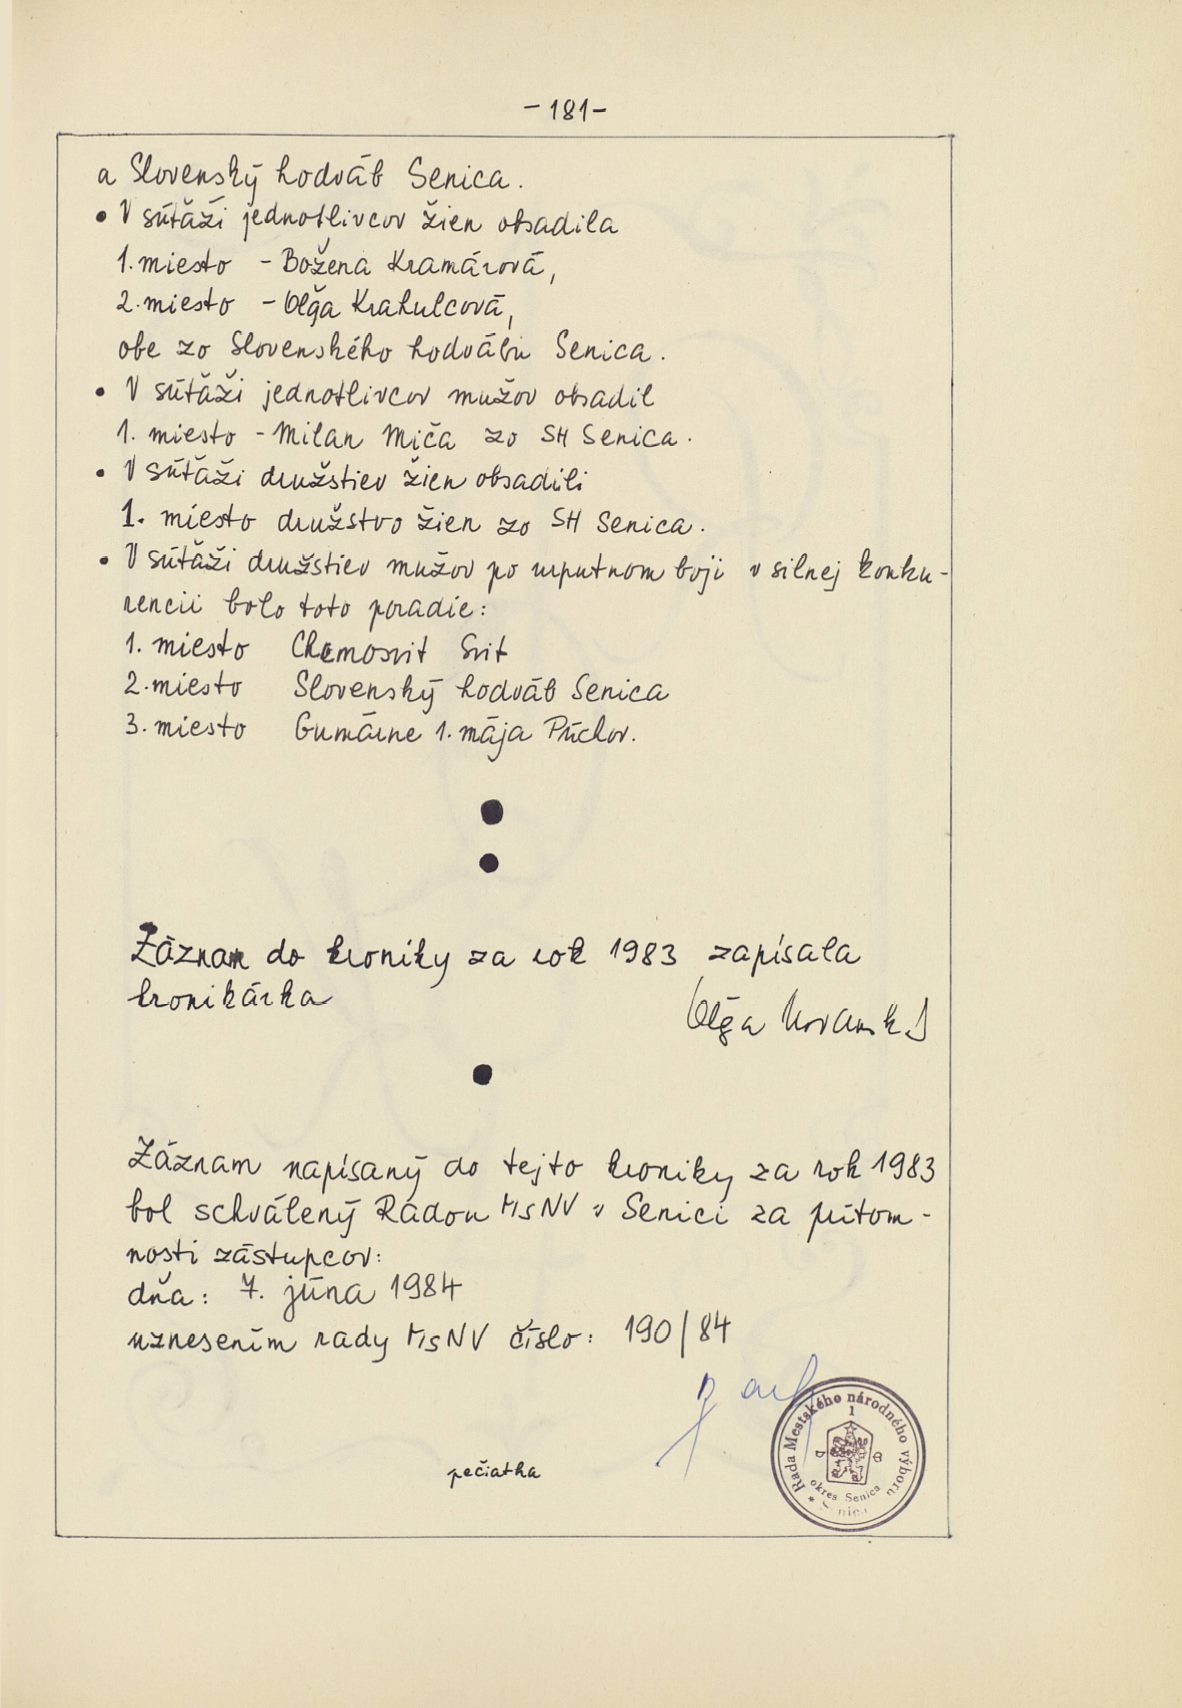 - 181 -
a Slovenský hodváb Senica.
• V súťaží jednotlivcov žien obsadila
1. miesto - Božena Kramárová,
2. miesto - Oľga Krahulcová,
obe zo Slovenského hodvábu Senica.
• V súťaži jednotlivcov mužov obsadil
1. miesto - Milan Miča zo SH Senica.
• V súťaži družstiev žien obsadili
1. miesto družstvo žien zo SH Senica.
• V súťaži družstiev mužov po urputnom boji v silnej konku-
rencii bolo toto poradie:
1. miesto Chemosvit Svit
2. miesto Slovenský hodváb Senica
3. miesto Gumárne 1. mája Púchov.
Záznam do kroniky za rok 1983 zapísala
kronikárka Oľga
Záznam napísaný do tejto kroniky za rok 1983
bol schválený Radou MsNV v Senici za prítom-
nosti zástupcov:
dňa: 7. júna 1984
uznesením rady MsNV číslo: 190/84
pečiatka
Rada Mestského národného výboru
1
okres Senica